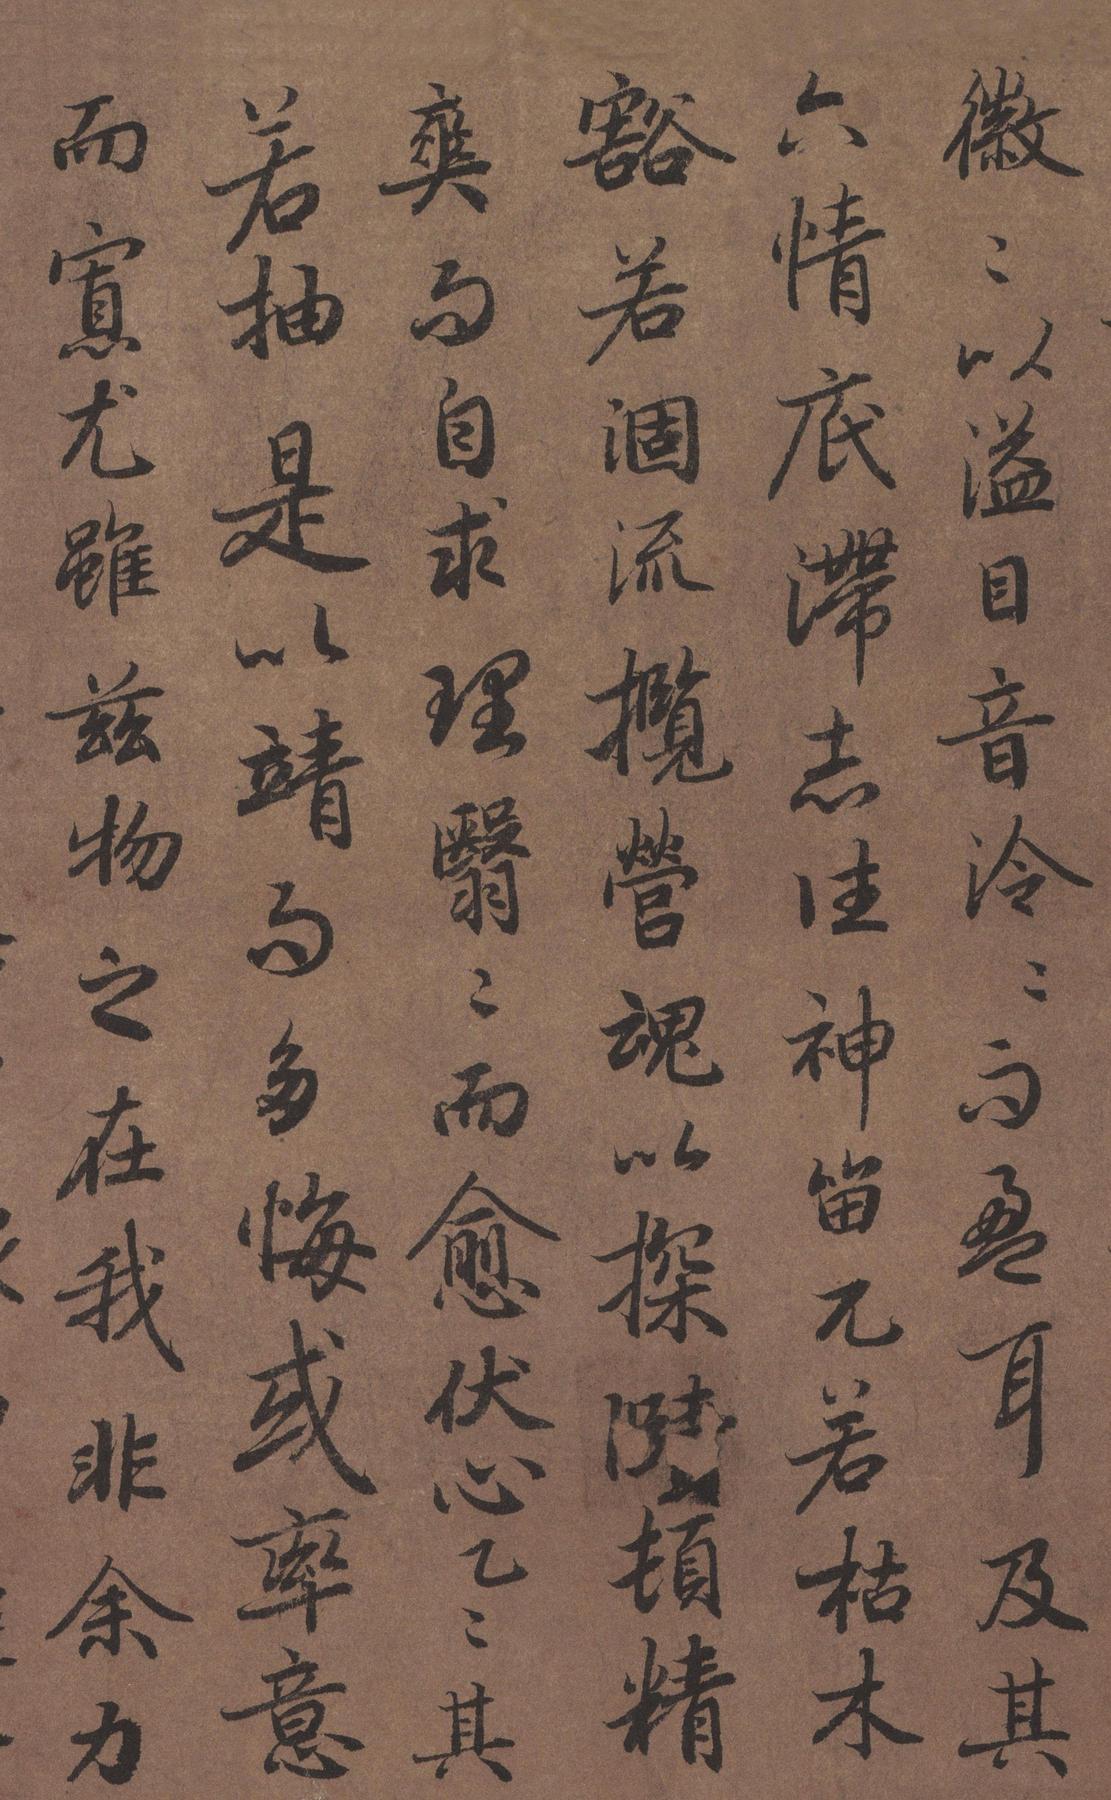 徽〻以溢目音泠〻而盈耳及其
六情底滯志往神留兀若枯木
豁若涸流攬營魂以探賾頓精
爽而自求理翳〻而愈伏思乙〻其
若抽是以竭情而多悔或率意
而寡尤雖茲物之在我非余力